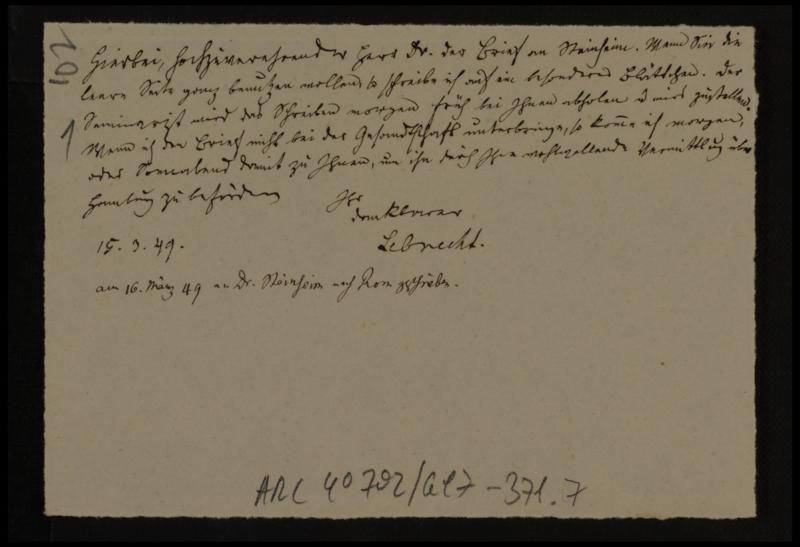 102
1
Hierbei, hochzuverehrender Herr Dr. der Brief an Steinheim. Wenn Sie die
leere Seite ganz benutzen wollen, so schreibe ich auf ein besonderes Blättchen. Der
Seminarist wird das Schreiben morgen früh bei Ihnen abholen u mir zustellen.
Wenn ich den Brief nicht bei der Gesandtschaft unterbringe, so kom̅e ich morgen,
oder Sonnabend damit zu Ihnen, um ihn durch Ihre wohlwollende Vermittlug über
Hamburg zu befördern
Ihr
dankbarer
Lebrecht.
15. 3. 49.
am 16. März 49 an Dr. Steinheim nach Rom geschrieben.
ARC 40792/ -371.7